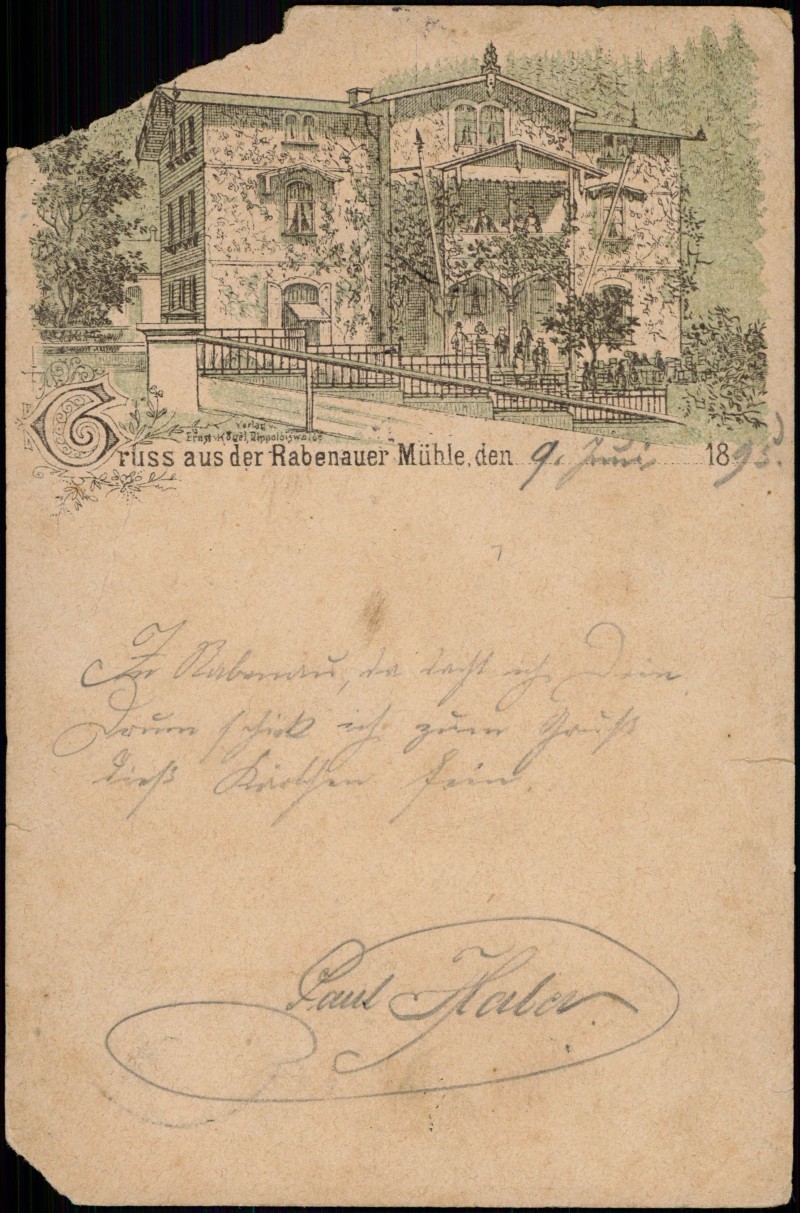 Verlag v.
Ernst Kögel, Dippoldiswalde
Gruss aus der Rabenauer Mühle, den 9. Juni 1895.
In Rabenau, da dacht ich Dein
Drum schick ich zum Gruß
dieß Kärtchen fein.
Paul Haber